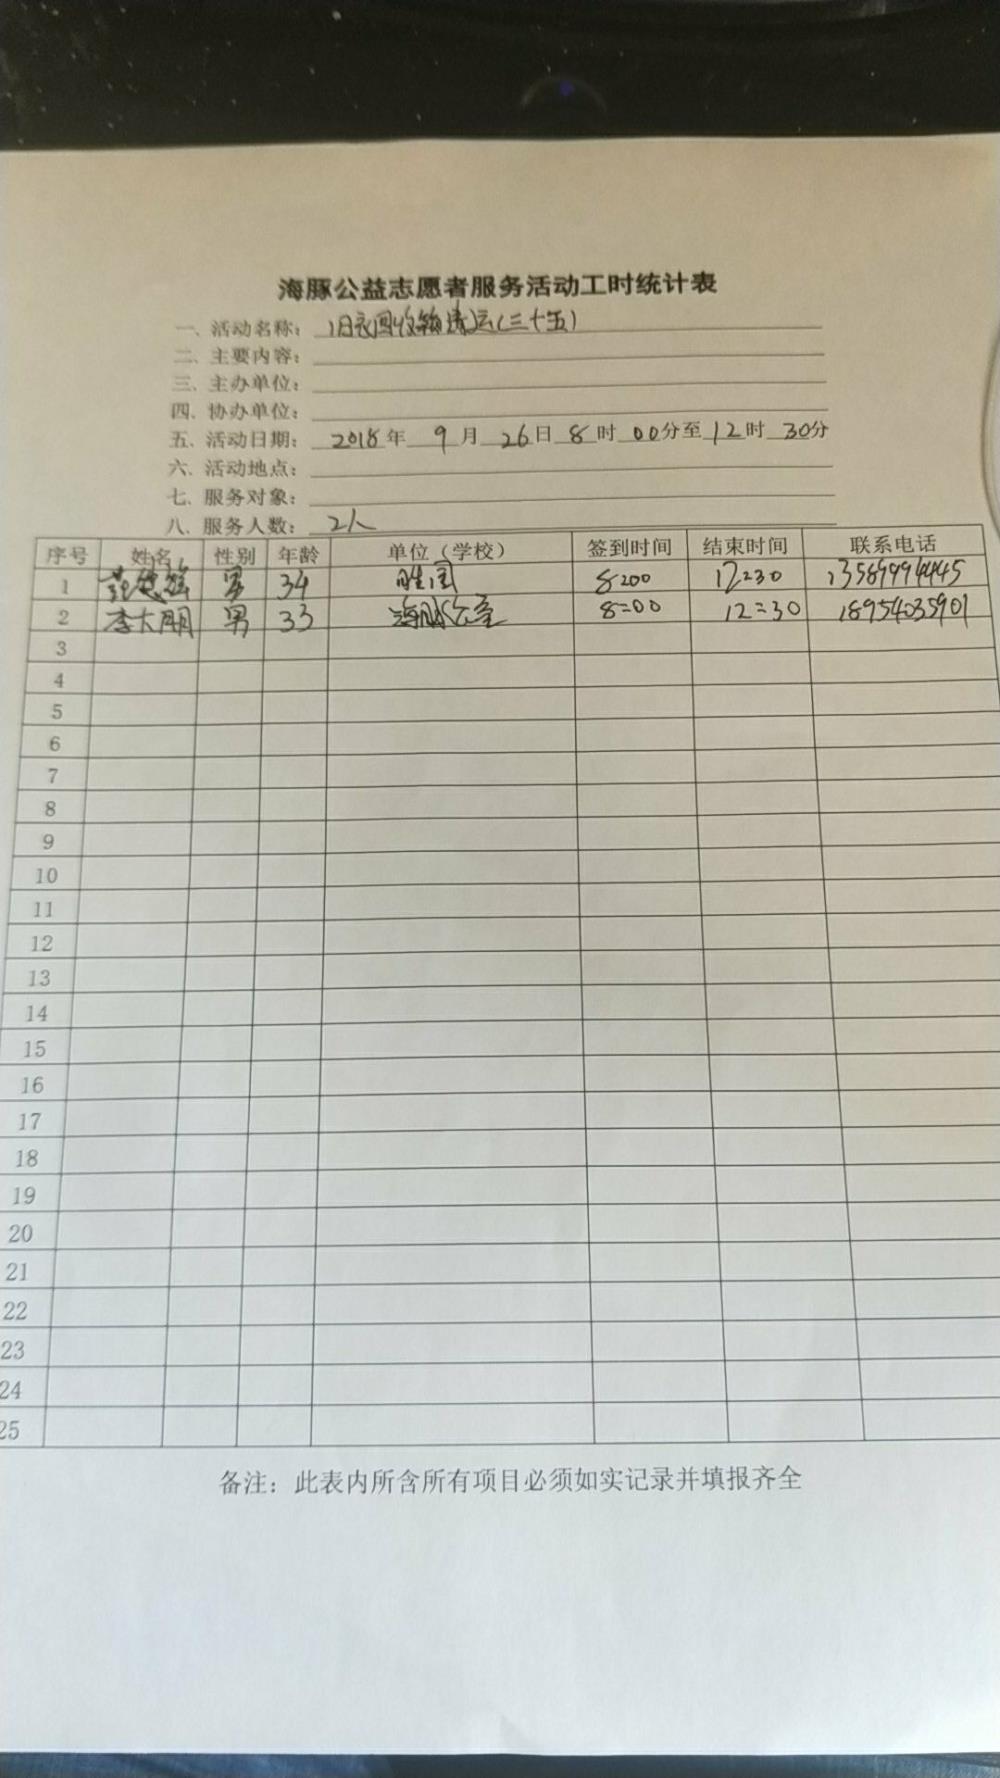 海豚公益志愿者服务活动工时统计表
一、活动名称：旧衣回收箱清运(三十五)
二、主要内容：
三、主办单位：
四、协办单位：
五、活动日期：2018年 9月 26日 8时 00分至12时 30分
六、活动地点：
七、服务对象：
八、服务人数：2人
序号 姓名 性别 年龄 单位（学校） 签到时间 结束时间 联系电话
1 男 34 8:00 12:30 13589994445
2 李大朋 男 33 海豚公益 8:00 12:30 18954035901
3
4
5
6
7
8
9
10
11
12
13
14
15
16
17
18
19
20
21
22
23
24
25
备注：此表内所含所有项目必须如实记录并填报齐全